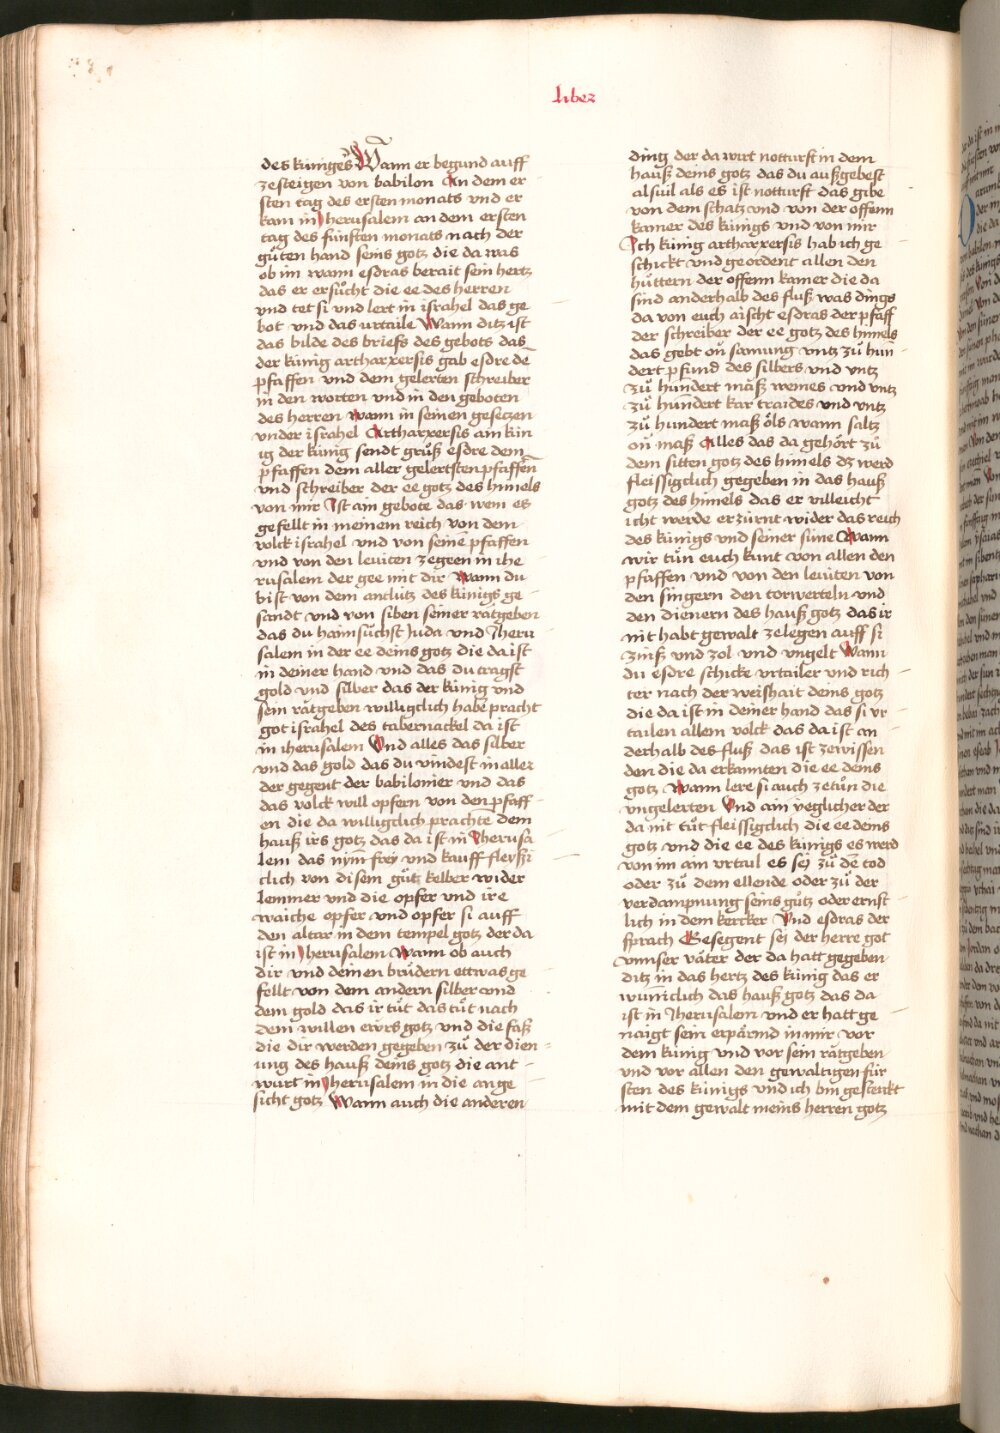 liber
des kuniges Wann er begund auff
zesteigen von babilon An dem er
sten tag des ersten monats vnd er
kam in Jherusalem an dem ersten
tag des funften monats nach der
guͦten hand seins gotz die da was
ob im wann esdras berait sein hertz
das er ersuͦcht die ee des herren
vnd tet si vnd lert in israhel das ge
bot vnd das vrtaile Wann ditz ist
das bilde des briefs des gebots das
der kúnig artharxersis gab esdre dē
pfaffen vnd dem gelerten schreiber
in den worten vnd in den geboten
des herren wann in seinen gesetzen
vnder israhel Artharxersis ain kún
ig der kúnig sendt gruͦß esdre dem
pfaffen dem aller gelertsten pfaffen
vnd schreiber der ee gotz des himels
von mir Ist ain gebote das wem es
gefellt in meinem reich von dem
volck israhel vnd von seinē pfaffen
vnd von den leuiten zegeen in ihe
rusalem der gee mit dir wann du
bist von dem antlutz des kúnigs ge
sandt vnd von siben seiner rátgeben
das du haimsuͦchst Juda vnd Jheru
salem in der ee deins gotz die da ist
in deiner hand vnd das du tragst
gold vnd silber das der kúnig vnd
sein rátgeben willigclich habē pracht
got israhel des tabernackel da ist
in iherusalem Vnd alles das silber
vnd das gold das du vindest in aller
der gegent der babilonier vnd das
das volck will opfern von den pfaff
en die da willigclich prachtē dem
hauß irs gotz das da ist in Jherusa
lem das nym frei vnd kauff fleyssi
clich von disem guͦt kelber wider
lemmer vnd die opfer vnd ire
waiche opfer vnd opfer si auff
den altar in dem tempel gotz der da
ist in Jherusalem Wann ob auch
dir vnd deinen bruͦdern ettwas ge
fellt von dem andern silber vnd
dem gold das ir tuͦt das tuͦt nach
dem willen ewrs gotz vnd die faß
die dir werden gegeben zuͦ der dien
ung des hauß deins gotz die ant
wurt in Jherusalem in die ange
sicht gotz Wann auch die anderen
ding der da wirt notturft in dem
hauß deins gotz das du außgebest
alsuil als es ist notturft das gibe
von dem schatz vnd von der offenn
kamer des kúnigs vnd von mir
Ich kúnig artharxersis hab ich ge
schickt vnd geordent allen den
huͤttern der offenn kamer die da
sind anderhalb des fluß was dings
da von euch aischt esdras der pfaff
der schreiber der ee gotz des himels
das gebt on samung vntz zuͦ hun
dert pfund des silbers vnd vntz
zuͦ hundert maß weines vnd vntz
zuͦ hundert kar traides vnd vntz
zuͦ hundert maß óls wann saltz
on maß Alles das da gehórt zuͦ
dem sitten gotz des himels dz werd
fleissigclich gegeben in das hauß
gotz des himels das er villeicht
icht werde erzúrnt wider das reich
des kúnigs vnd seiner súne Wann
wir tún euch kunt von allen den
pfaffen vnd von den leuiten von
den singern den torwerteln vnd
den dienern des hauß gotz das ir
nit habt gewalt zelegen auff si
zinß vnd zol vnd vngelt Wann
du esdre schicke vrtailer vnd rich
ter nach der weishait deins gotz
die da ist in deiner hand das si vr
tailen allem volck das da ist an
derhalb des fluß das ist zewissen
den die da erkannten die ee deins
gotz wann lere si auch zetuͦn die
vngelerten Vnd ain yeglicher der
da nit tuͦt fleissigclich die ee deins
gotz vnd die ee des kúnigs es werd
von im ain vrtail es sej zuͦ dē tod
oder zuͦ dem ellende oder zuͦ der
verdampnung seins guͦtz oder ernst
lich in dem kercker Vnd esdras der
sprach Gesegent sej der herre got
vnnser vátter der da hatt gegeben
ditz in das hertz des kúnig das er
wunniclich das hauß gotz das da
ist in Jherusalem vnd er hatt ge
naigt sein erpármd in mir vor
dem kúnig vnd vor sein rátgeben
vnd vor allen den gewaltigen fúr
sten des kúnigs vnd ich bin gesterckt
mit dem gewalt meins herren gotz